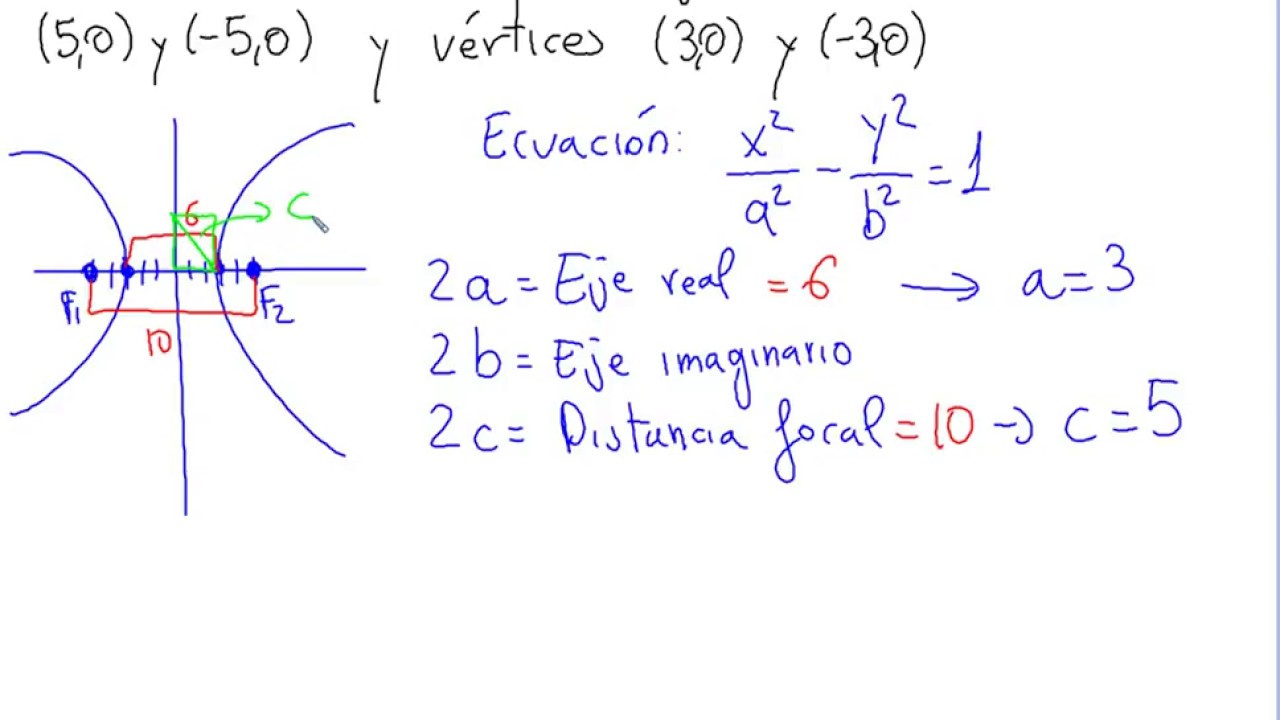 (5,0) y (-5,0) y vértices (3,0) y (-3,0)
Ecuación: x²/a² - y²/b² = 1
6 → C
F₁ F₂
10
2a = Eje real = 6 → a = 3
2b = Eje imaginario
2c = Distancia focal = 10 → c = 5